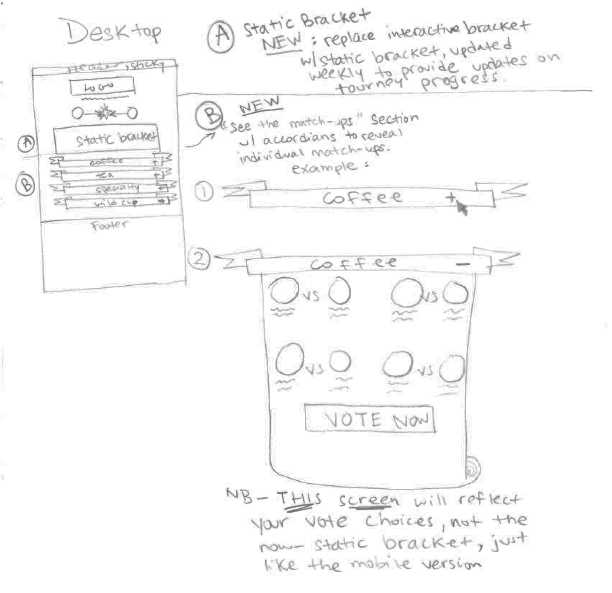 Desktop
Header, sticky
LOGO
A
static bracket
B
coffee +
tea
specialty
wild cup
Footer
A Static Bracket
NEW : replace interactive bracket
w/ static bracket, updated
weekly to provide updates on
tourney progress.
B NEW
"See the match-ups" section
w/ accordians to reveal
individual match-ups.
example :
1 coffee +
2 coffee –
VS VS
VS VS
VOTE NOW
NB – THIS screen will reflect
your vote choices, not the
now- static bracket, just
like the mobile version